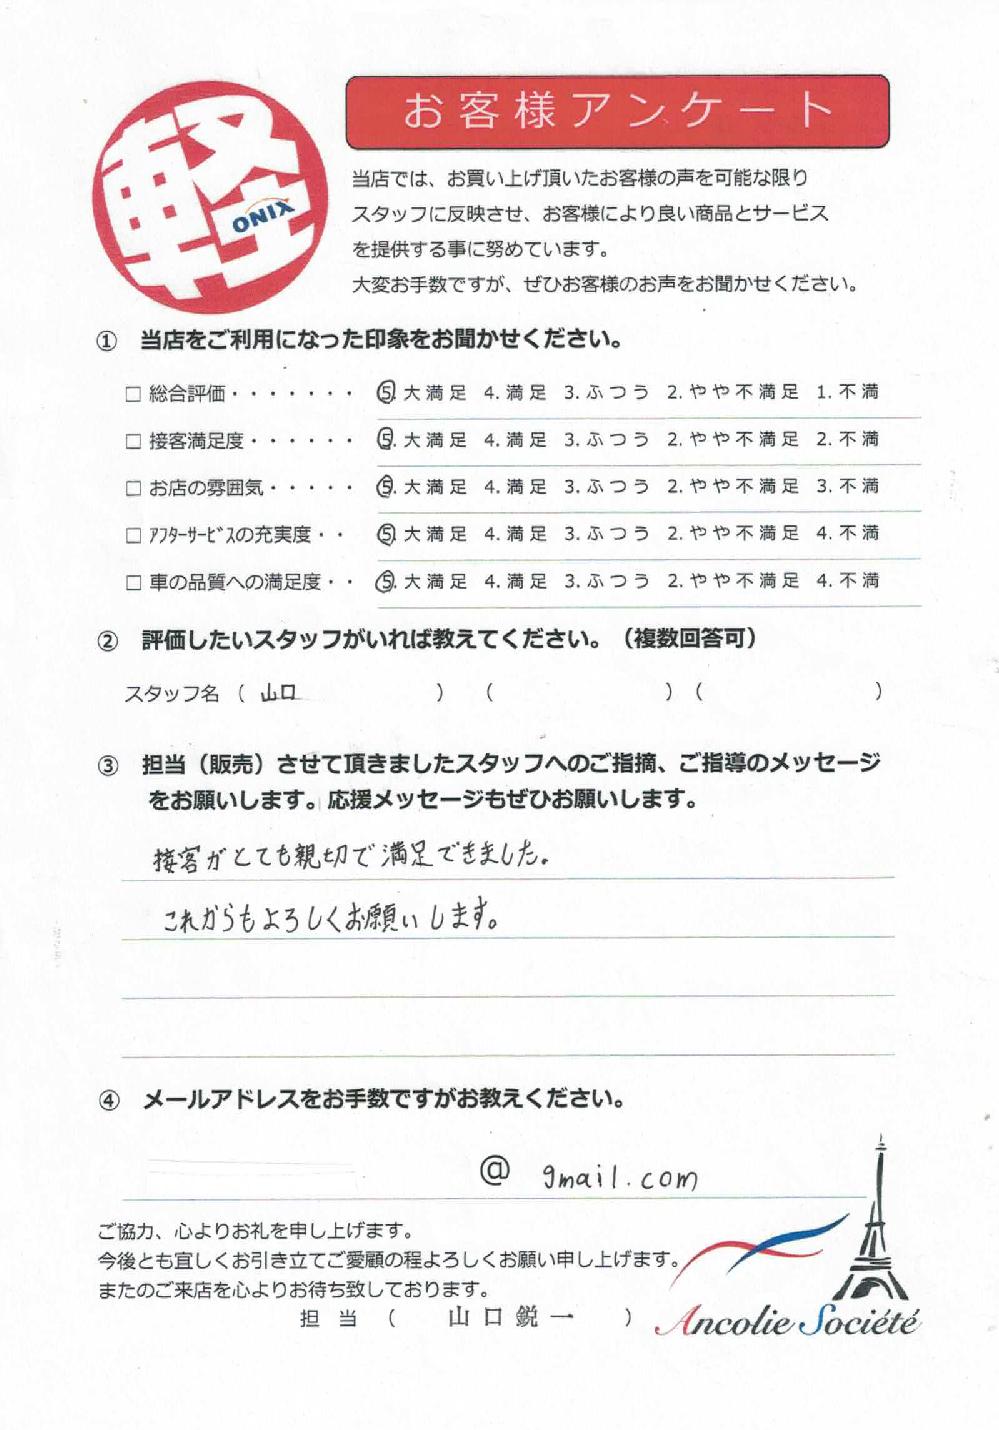 軽
ONIX
お客様アンケート
当店では、お買い上げ頂いたお客様の声を可能な限り
スタッフに反映させ、お客様により良い商品とサービス
を提供する事に努めています。
大変お手数ですが、ぜひお客様のお声をお聞かせください。
① 当店をご利用になった印象をお聞かせください。
□ 総合評価・・・・・・・ 5. 大満足 4. 満足 3. ふつう 2. やや不満足 1. 不満
□ 接客満足度・・・・・・ 5. 大満足 4. 満足 3. ふつう 2. やや不満足 2. 不満
□ お店の雰囲気・・・・・ 5. 大満足 4. 満足 3. ふつう 2. やや不満足 3. 不満
□ ｱﾌﾀｰｻｰﾋﾞｽの充実度・・ 5. 大満足 4. 満足 3. ふつう 2. やや不満足 4. 不満
□ 車の品質への満足度・・ 5. 大満足 4. 満足 3. ふつう 2. やや不満足 4. 不満
② 評価したいスタッフがいれば教えてください。（複数回答可）
スタッフ名（ 山口 ） （ ）（ ）
③ 担当（販売）させて頂きましたスタッフへのご指摘、ご指導のメッセージ
をお願いします。応援メッセージもぜひお願いします。
接客がとても親切で満足できました。
これからもよろしくお願いします。
④ メールアドレスをお手数ですがお教えください。
@ gmail.com
ご協力、心よりお礼を申し上げます。
今後とも宜しくお引き立てご愛顧の程よろしくお願い申し上げます。
またのご来店を心よりお待ち致しております。
担当（ 山口鋭一 ）
Ancolie Société